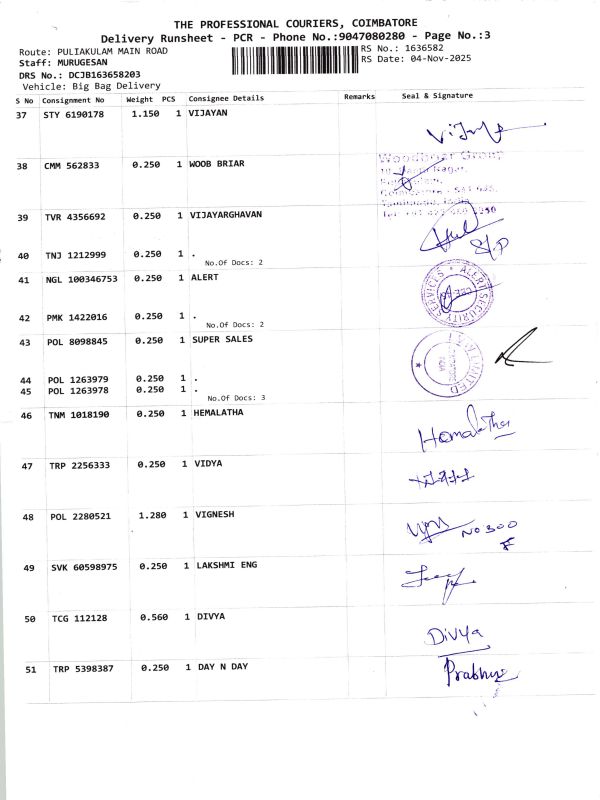 THE PROFESSIONAL COURIERS, COIMBATORE
Delivery Runsheet - PCR - Phone No.:9047080280 - Page No.:3
Route: PULIAKULAM MAIN ROAD
RS No.: 1636582
Staff: MURUGESAN
RS Date: 04-Nov-2025
DRS No.: DCJB163658203
Vehicle: Big Bag Delivery
S No Consignment No Weight PCS Consignee Details Remarks Seal & Signature
37 STY 6190178 1.150 1 VIJAYAN
38 CMM 562833 0.250 1 WOOB BRIAR
Woodbriar Group
39 TVR 4356692 0.250 1 VIJAYARGHAVAN
40 TNJ 1212999 0.250 1 .
No.Of Docs: 2
41 NGL 100346753 0.250 1 ALERT
ALERT SECURITY SERVICES
42 PMK 1422016 0.250 1 .
No.Of Docs: 2
43 POL 8098845 0.250 1 SUPER SALES
LIMITED
44 POL 1263979 0.250 1 .
45 POL 1263978 0.250 1 .
No.Of Docs: 3
46 TNM 1018190 0.250 1 HEMALATHA
Hemalatha
47 TRP 2256333 0.250 1 VIDYA
48 POL 2280521 1.280 1 VIGNESH
NO 300
F
49 SVK 60598975 0.250 1 LAKSHMI ENG
50 TCG 112128 0.560 1 DIVYA
Divya
51 TRP 5398387 0.250 1 DAY N DAY
Prabhu